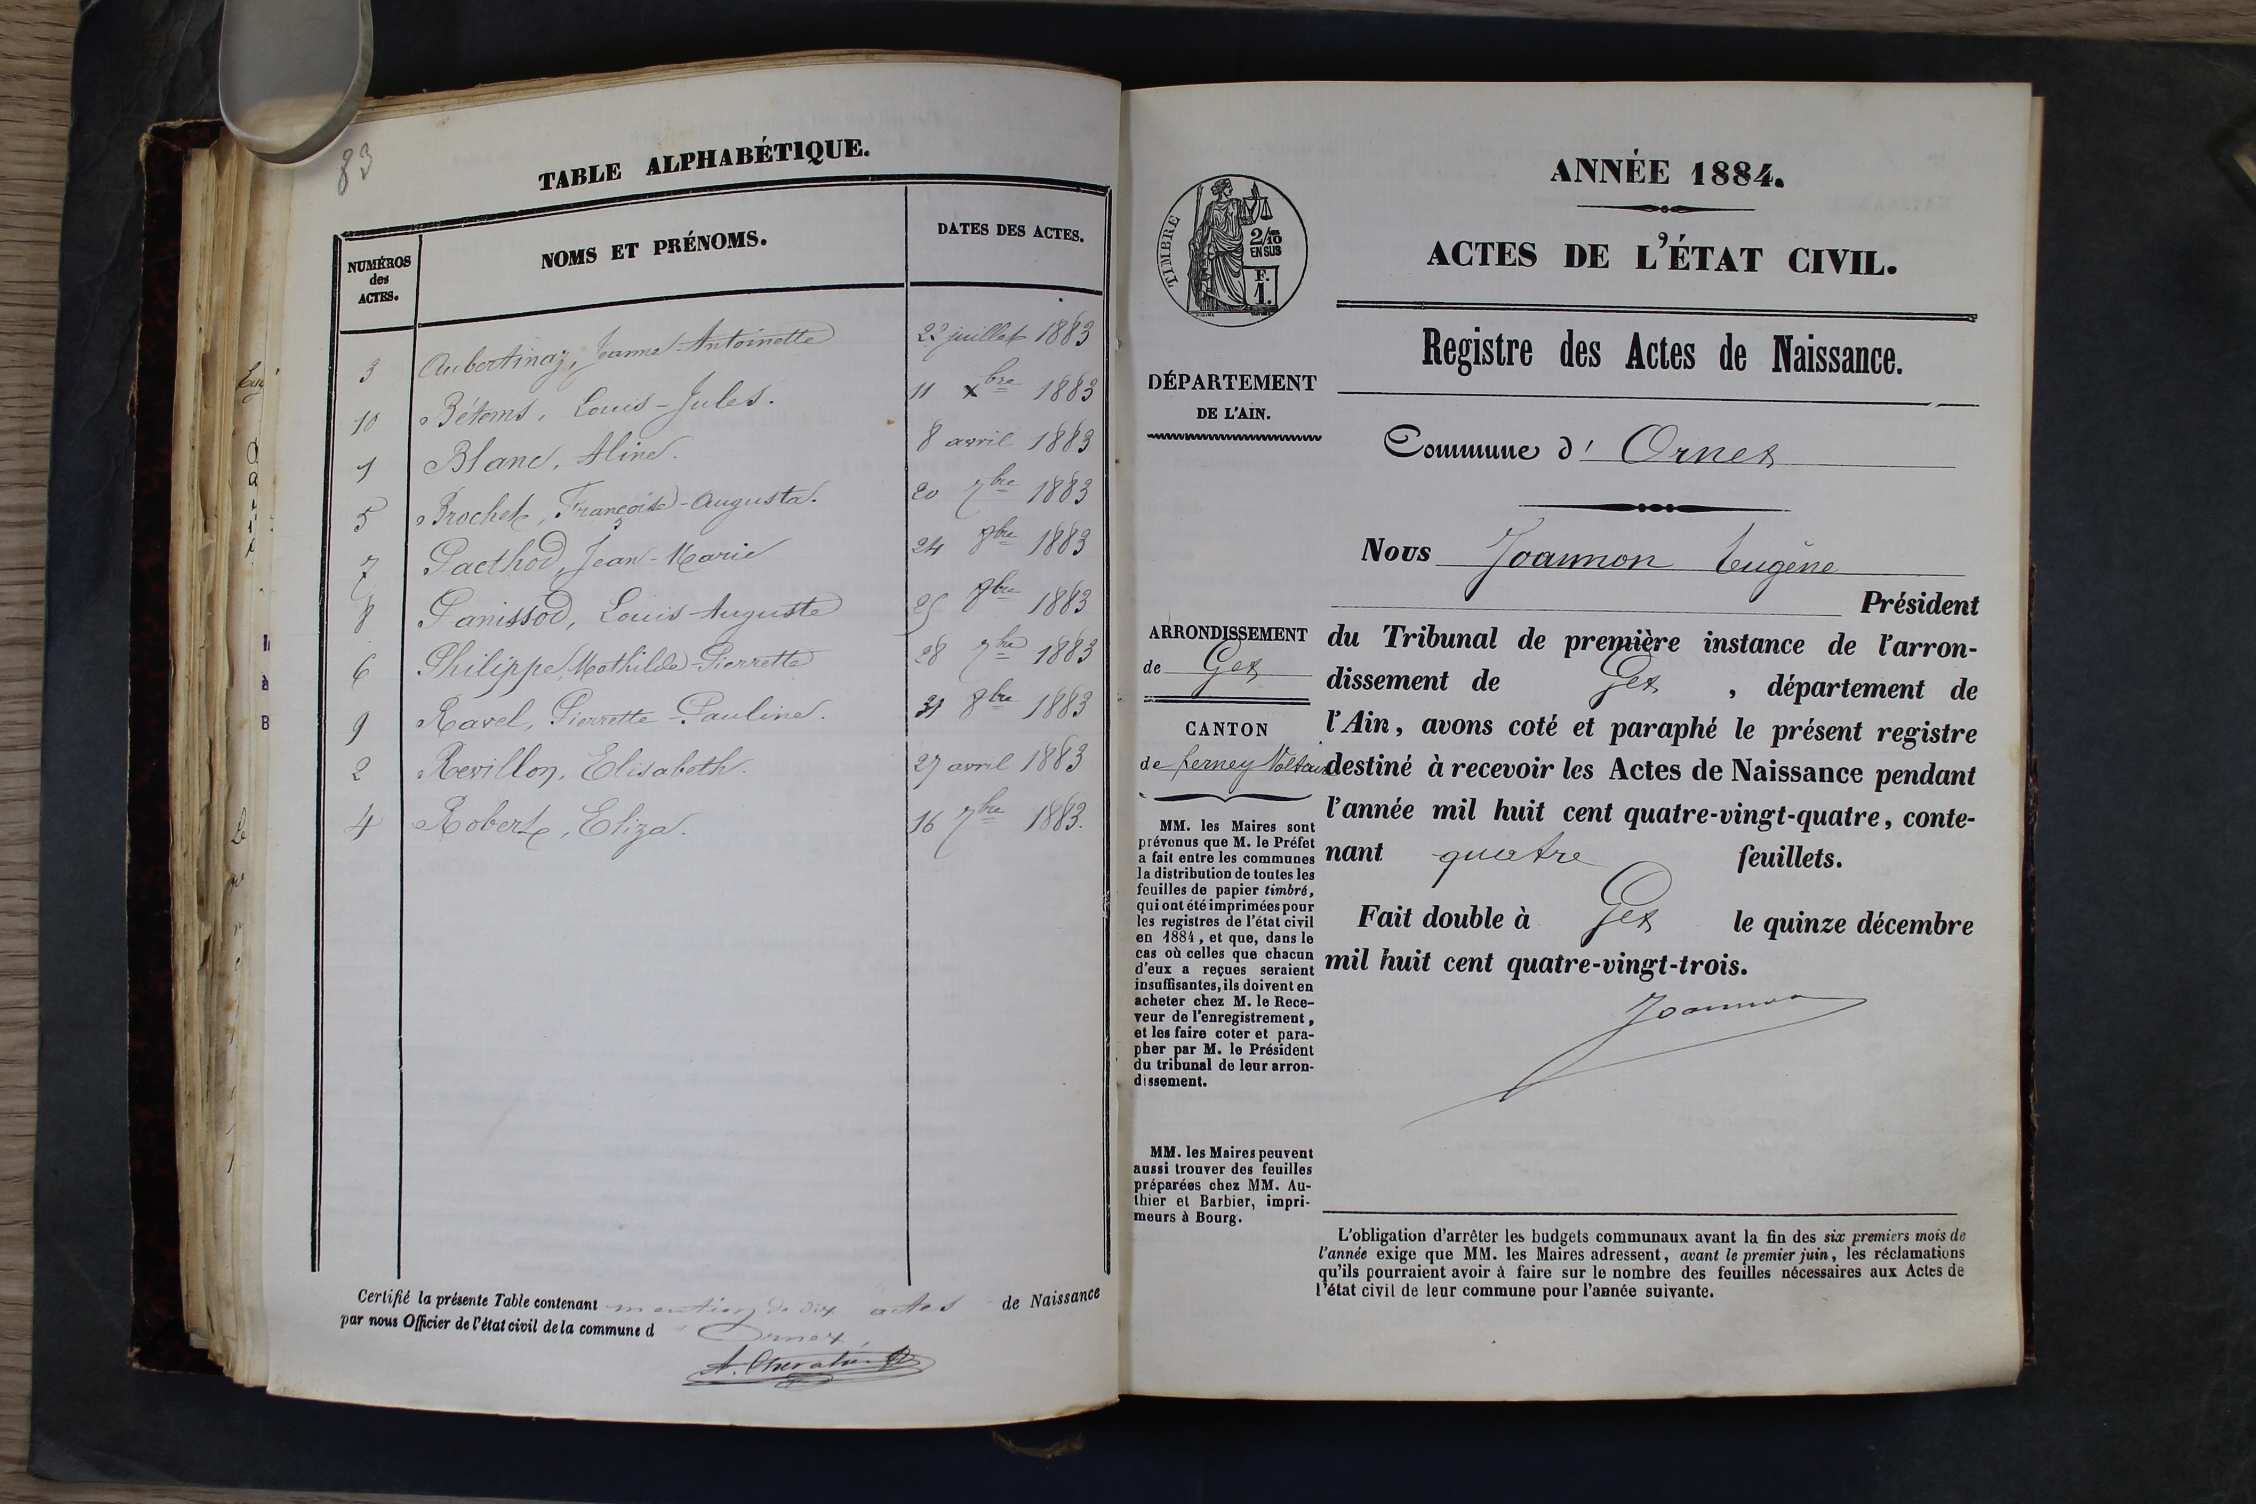 83
TABLE ALPHABÉTIQUE.
NUMÉROS des ACTES. NOMS ET PRÉNOMS. DATES DES ACTES.
3 Aubertinaz, Jeanne-Antoinette 22 juillet 1883
10 Bétems, Louis-Jules. 11 Xbre 1883
1 Blanc, Aline. 8 avril 1883
5 Brochet, Françoise-Augusta. 20 7bre 1883
7 Pacthod, Jean-Marie 24 8bre 1883
8 Panissod, Louis-Auguste 25 8bre 1883
6 Philippe, Mathilde-Pierrette 28 7bre 1883
9 Ravel, Pierrette-Pauline. 31 8bre 1883
2 Revillon, Elisabeth. 27 avril 1883
4 Robert, Eliza. 16 7bre 1883.
Certifié la présente Table contenant mention de dix actes de Naissance
par nous Officier de l'état civil de la commune d'Ornex,
TIMBRE
2/10
EN SUS
F.
1.
DÉPARTEMENT
DE L'AIN.
ARRONDISSEMENT
de Gex
CANTON
de Ferney Voltaire
MM. les Maires sont
prévenus que M. le Préfet
a fait entre les communes
la distribution de toutes les
feuilles de papier timbré,
qui ont été imprimées pour
les registres de l'état civil
en 1884, et que, dans le
cas où celles que chacun
d'eux a reçues seraient
insuffisantes, ils doivent en
acheter chez M. le Rece-
veur de l'enregistrement,
et les faire coter et para-
pher par M. le Président
du tribunal de leur arron-
dissement.
MM. les Maires peuvent
aussi trouver des feuilles
préparées chez MM. Au-
thier et Barbier, impri-
meurs à Bourg.
ANNÉE 1884.
ACTES DE L'ÉTAT CIVIL.
Registre des Actes de Naissance.
Commune d'Ornex
Nous Joannon Eugène
Président
du Tribunal de première instance de l'arron-
dissement de Gex, département de
l'Ain, avons coté et paraphé le présent registre
destiné à recevoir les Actes de Naissance pendant
l'année mil huit cent quatre-vingt-quatre, conte-
nant quatre feuillets.
Fait double à Gex le quinze décembre
mil huit cent quatre-vingt-trois.
Joannon
L'obligation d'arrêter les budgets communaux avant la fin des six premiers mois de
l'année exige que MM. les Maires adressent, avant le premier juin, les réclamations
qu'ils pourraient avoir à faire sur le nombre des feuilles nécessaires aux Actes de
l'état civil de leur commune pour l'année suivante.